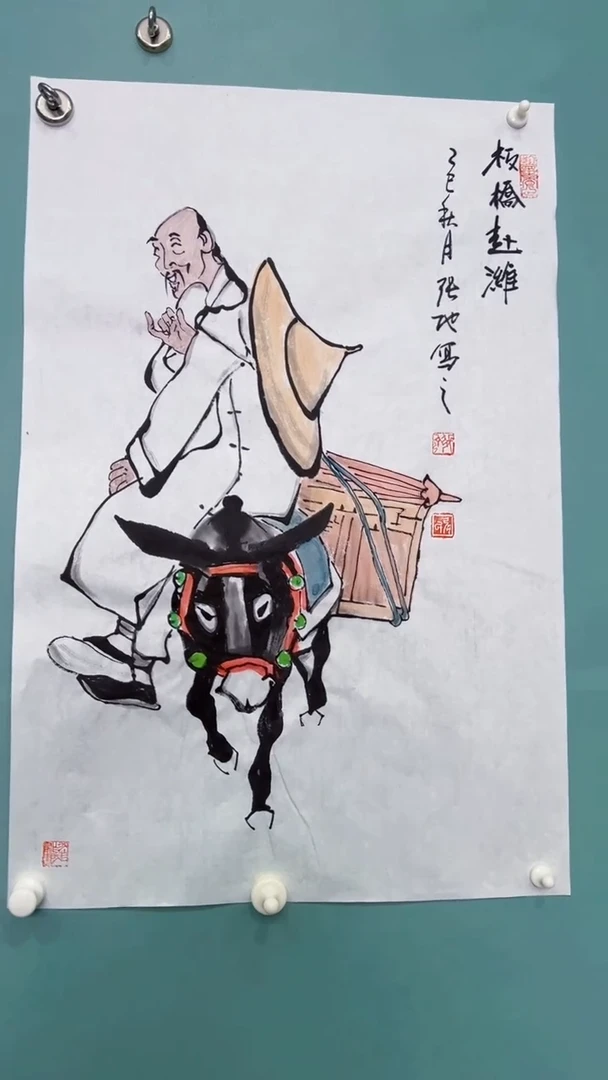 板橋赴濰
乙巳秋月張地寫之